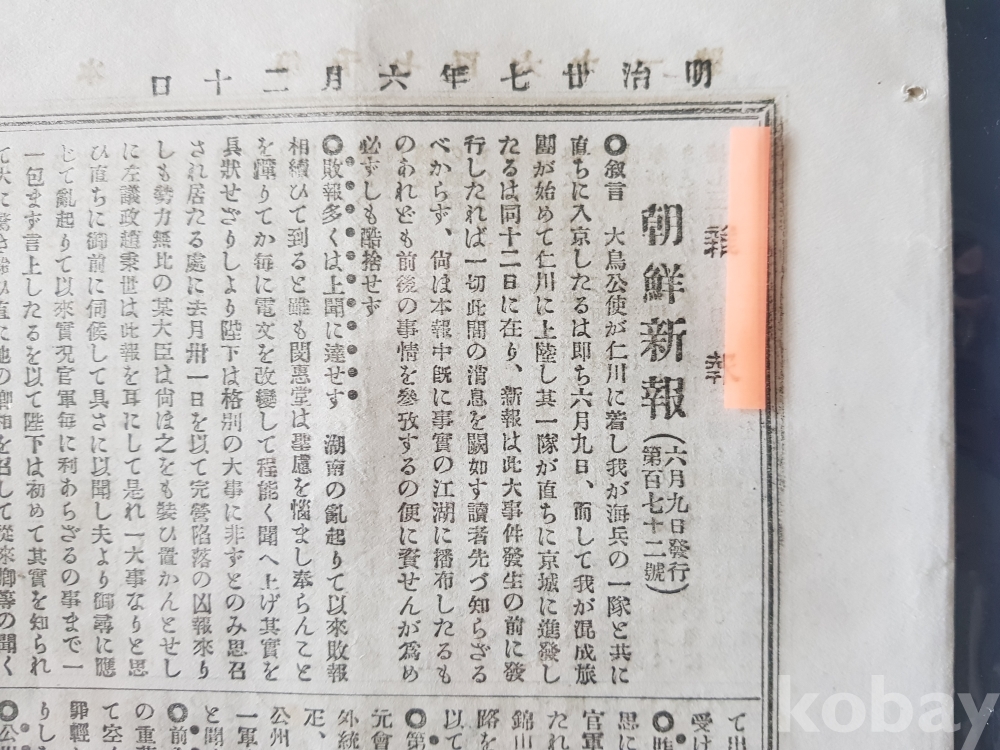 明治廿七年六月二十日
朝鮮新報（六月九日發行 第百七十二號）
◎叙言　大鳥公使が仁川に着し我が海兵の一隊と共に
直ちに入京したるは即ち六月九日、而して我が混成旅
團が始めて仁川に上陸し其一隊が直ちに京城に進發し
たるは同十二日に在り、新報は此大事件發生の前に發
行したれば一切此間の消息を闕如す讀者先づ知らざる
べからず、尙ほ本報中既に事實の江湖に播布したるも
のあれども前後の事情を參攷するの便に資せんが爲め
必ずしも酷捨せず
◎敗報多くは上聞に達せす　湖南の亂起りて以來敗報
相續ひて到ると雖も閔惠堂は聖慮を惱まし奉らんこと
を憚りてか每に電文を改變して程能く聞へ上げ其實を
具狀せざりしより陛下は格別の大事に非ずとのみ思召
され居たる處に去月卅一日を以て完營陷落の凶報來り
しも勢力無比の某大臣は尙ほ之をも裝ひ置かんとせし
に左議政趙秉世は此報を耳にして是れ一大事なりと思
ひ直ちに御前に伺候して具さに以聞し夫より御尋に應
じて亂起りて以來實況官軍每に利あらざるの事まで一
一包まず言上したるを以て陛下は初めて其實を知られ
て出
受け
◎昨
思に
官軍
たれ
錦山
路を
以て
◎第
元會
外統
疋、
公州
一軍
と聞
◎前
の重
て空
罪輕
りし
◎公州
kobay